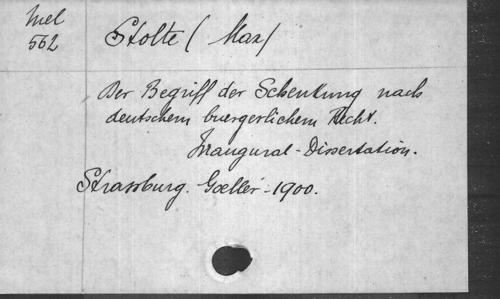 Mel
562
Stolte (Max)
Der Begriff der Schenkung nach
deutschem buergerlichem Recht.
Inaugural-Dissertation.
Strassburg. Goeller - 1900.